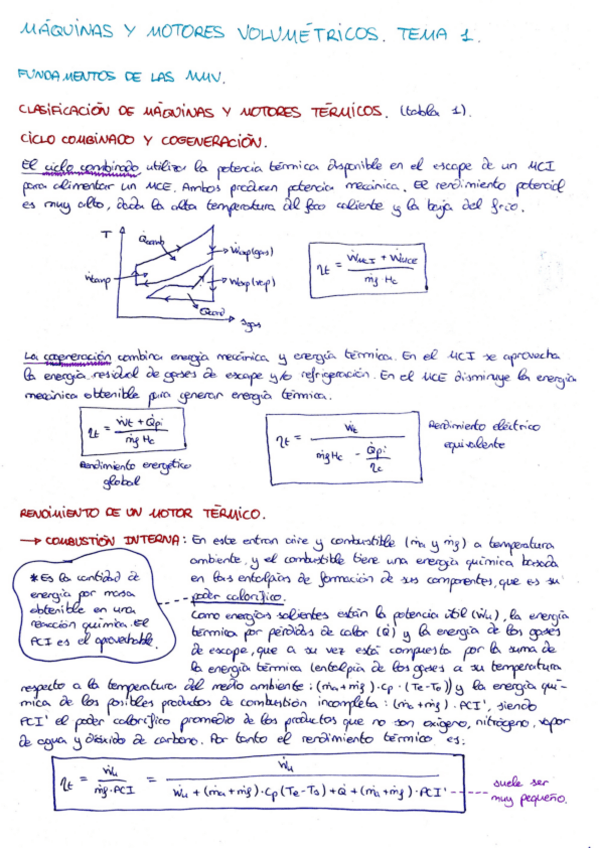 MÁQUINAS Y MOTORES VOLUMÉTRICOS. TEMA 1.
FUNDAMENTOS DE LAS MMV.
CLASIFICACIÓN DE MÁQUINAS Y MOTORES TÉRMICOS. (tabla 1).
CICLO COMBINADO Y COGENERACIÓN.
El ciclo combinado utiliza la potencia térmica disponible en el escape de un MCI
para alimentar un MCE. Ambos producen potencia mecánica. El rendimiento potencial
es muy alto, dada la alta temperatura del foco caliente y la baja del frío.
T
Q̇comb
Ẇexp(gas)
Ẇcomp
Ẇexp(vap)
Q̇cond
ηt = (ẆMCI + ẆMCE) / (ṁf Hc)
La cogeneración combina energía mecánica y energía térmica. En el MCI se aprovecha
la energía residual de gases de escape y/o refrigeración. En el MCE disminuye la energía
mecánica obtenible para generar energía térmica.
ηt = (Ẇt + Q̇pi) / (ṁf Hc)
Rendimiento energético
global
ηt = Ẇt / (ṁf Hc - Q̇pi / ηc)
Rendimiento eléctrico
equivalente
RENDIMIENTO DE UN MOTOR TÉRMICO.
→ COMBUSTIÓN INTERNA: En este entran aire y combustible (ṁa y ṁf) a temperatura
ambiente, y el combustible tiene una energía química basada
en las entalpías de formación de sus componentes, que es su
poder calorífico.
* Es la cantidad de
energía por masa
obtenible en una
reacción química. El
PCI es el aprovechable.
Como energías salientes están la potencia útil (Ẇu), la energía
térmica por pérdidas de calor (Q̇) y la energía de los gases
de escape, que a su vez está compuesta por la suma de
la energía térmica (entalpía de los gases a su temperatura
respecto a la temperatura del medio ambiente: (ṁa+ṁf)·Cp·(Te-To)) y la energía quí-
mica de los posibles productos de combustión incompleta: (ṁa+ṁf)·PCI', siendo
PCI' el poder calorífico promedio de los productos que no son oxígeno, nitrógeno, vapor
de agua y dióxido de carbono. Por tanto el rendimiento térmico es:
ηt = Ẇu / (ṁf·PCI) = Ẇu / (Ẇu + (ṁa+ṁf)·Cp(Te-To) + Q̇ + (ṁa+ṁf)·PCI')
suele ser
muy pequeño.